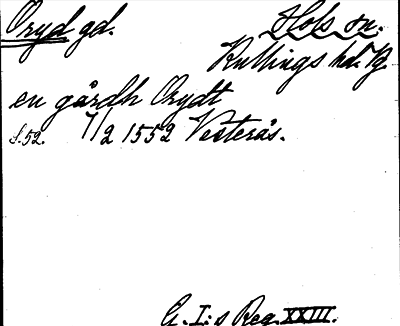 Oryd gd. Hols sn.
Kullings hd. Vg.
en gårdh Orydt
s. 52. 7/2 1552 Vesterås.
G. I:s Reg. XXIII.